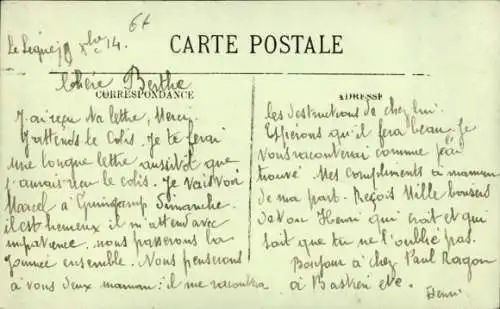 Le Légué, 8 Xbre 14.
64
CARTE POSTALE
Chère Berthe
CORRESPONDANCE
J'ai reçu ta lettre, Merci.
J'attends le Colis. Je te ferai
une longue lettre aussitôt que
j'aurais reçu le colis. Je vais voir
Marcel à Guingamp dimanche.
il est heureux il m'attend avec
impatience. nous passerons la
journée ensemble. Nous penserons
à vous deux maman: il me racontera
ADRESSE
les destructions de chez lui.
Espérons qu'il fera beau. Je
vous raconterai comme j'ai
trouvé. Mes compliments à maman
de ma part. Reçois Mille baisers
de ton Henri qui croit et qui
sait que tu ne l'oublie pas.
Bonjour à chez Paul Ragon
à Bastien etc.
Henri